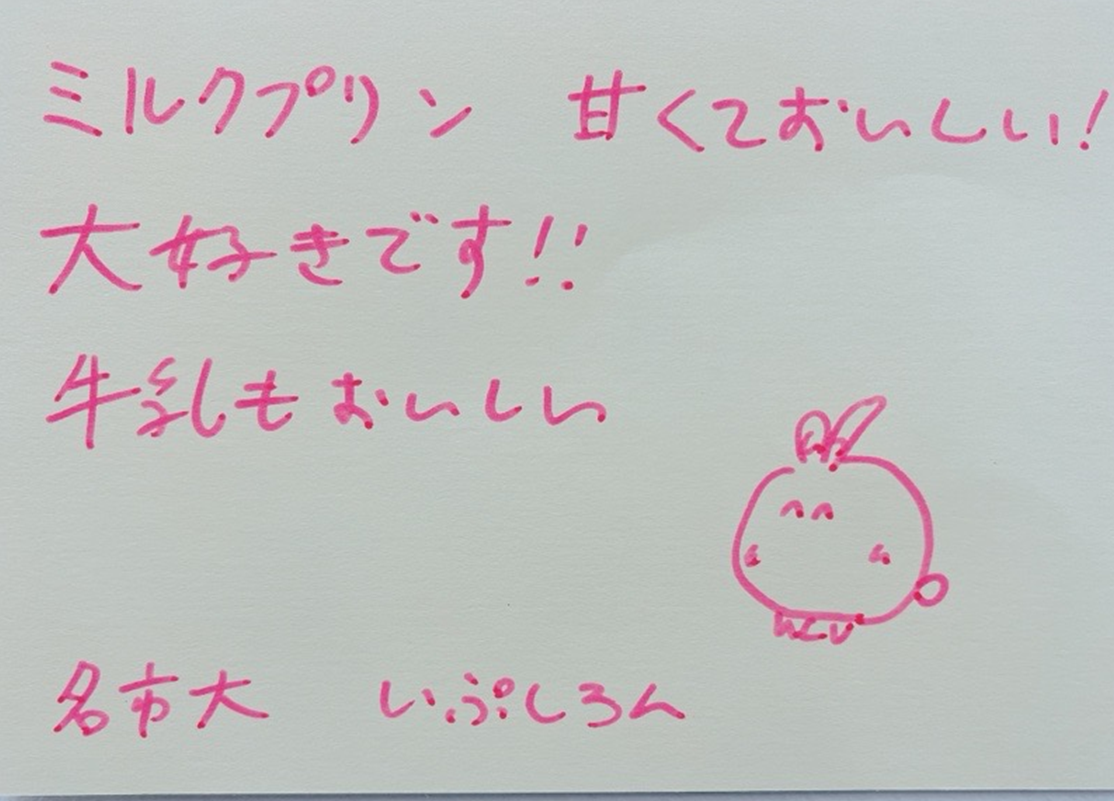 ミルクプリン 甘くておいしい!
大好きです!!
牛乳もおいしい
NCU
名市大 いぷしろん